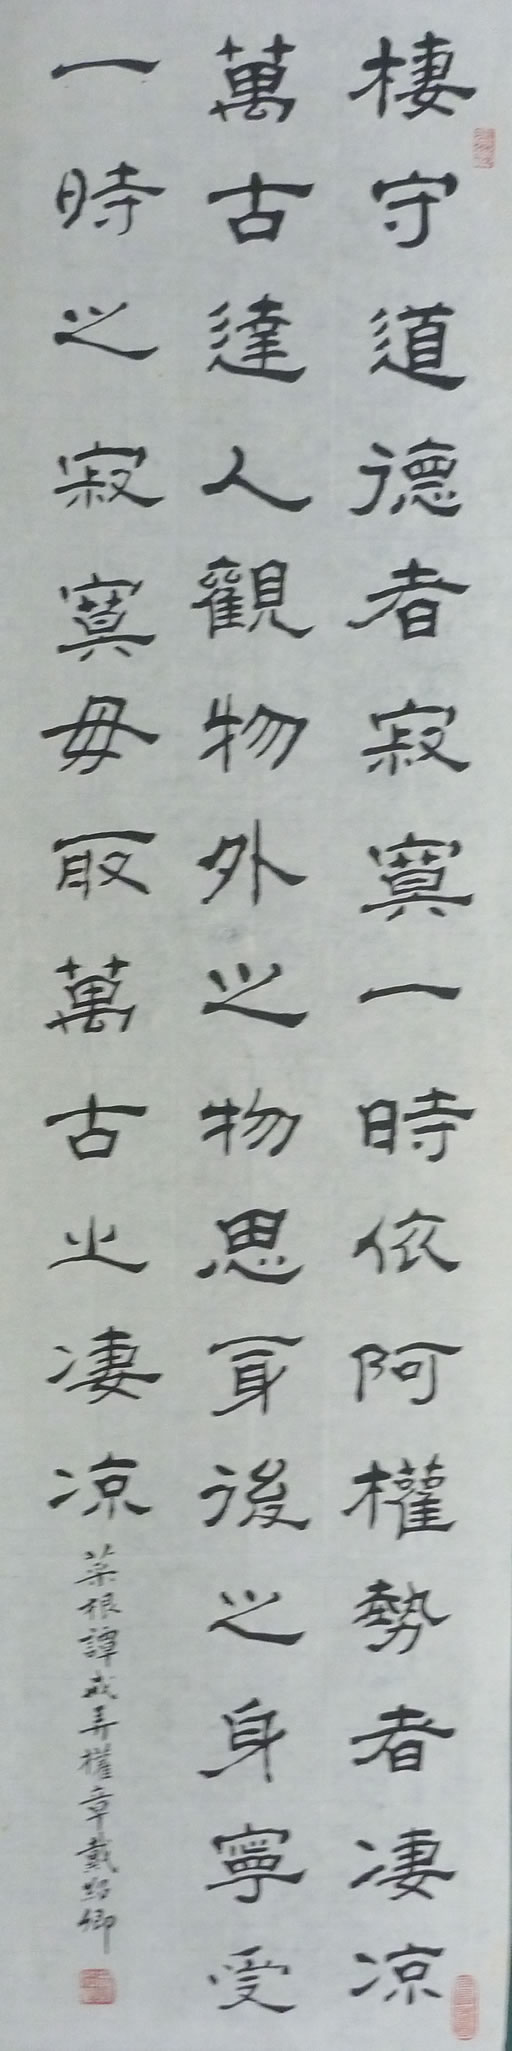 棲守道德者寂寞一時依阿權勢者凄凉
萬古達人觀物外之物思身後之身寧受
一時之寂寞毋取萬古之凄凉
菜根譚戒弄權章戴紹卿